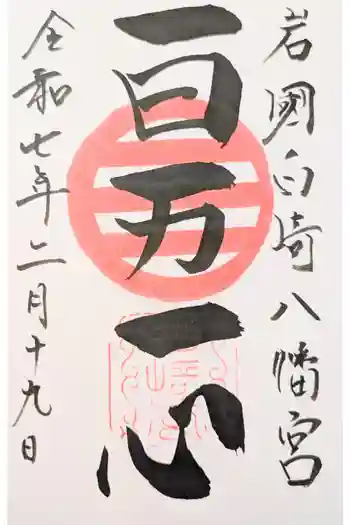 岩國白崎八幡宮
百万一心
令和七年二月十九日